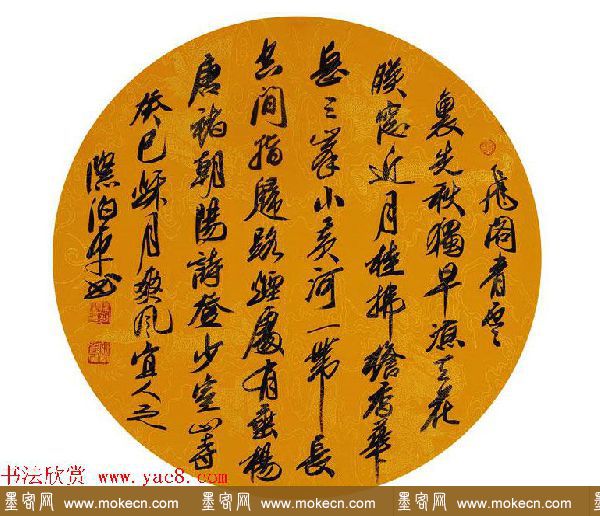 飛閣青霞
裏先秋獨早凉天花
映窓近月桂拂檐香華
岳三峯小黄河一帶長
空間指歸路煙處有垂楊
唐褚朝陽詩登少室山寺
癸巳秌月爽风宜人之
際泊平书
书法欣赏 www.yac8.com
墨客网 www.mokecn.com 墨客网 www.mokecn.com 墨客网 www.mokecn.com